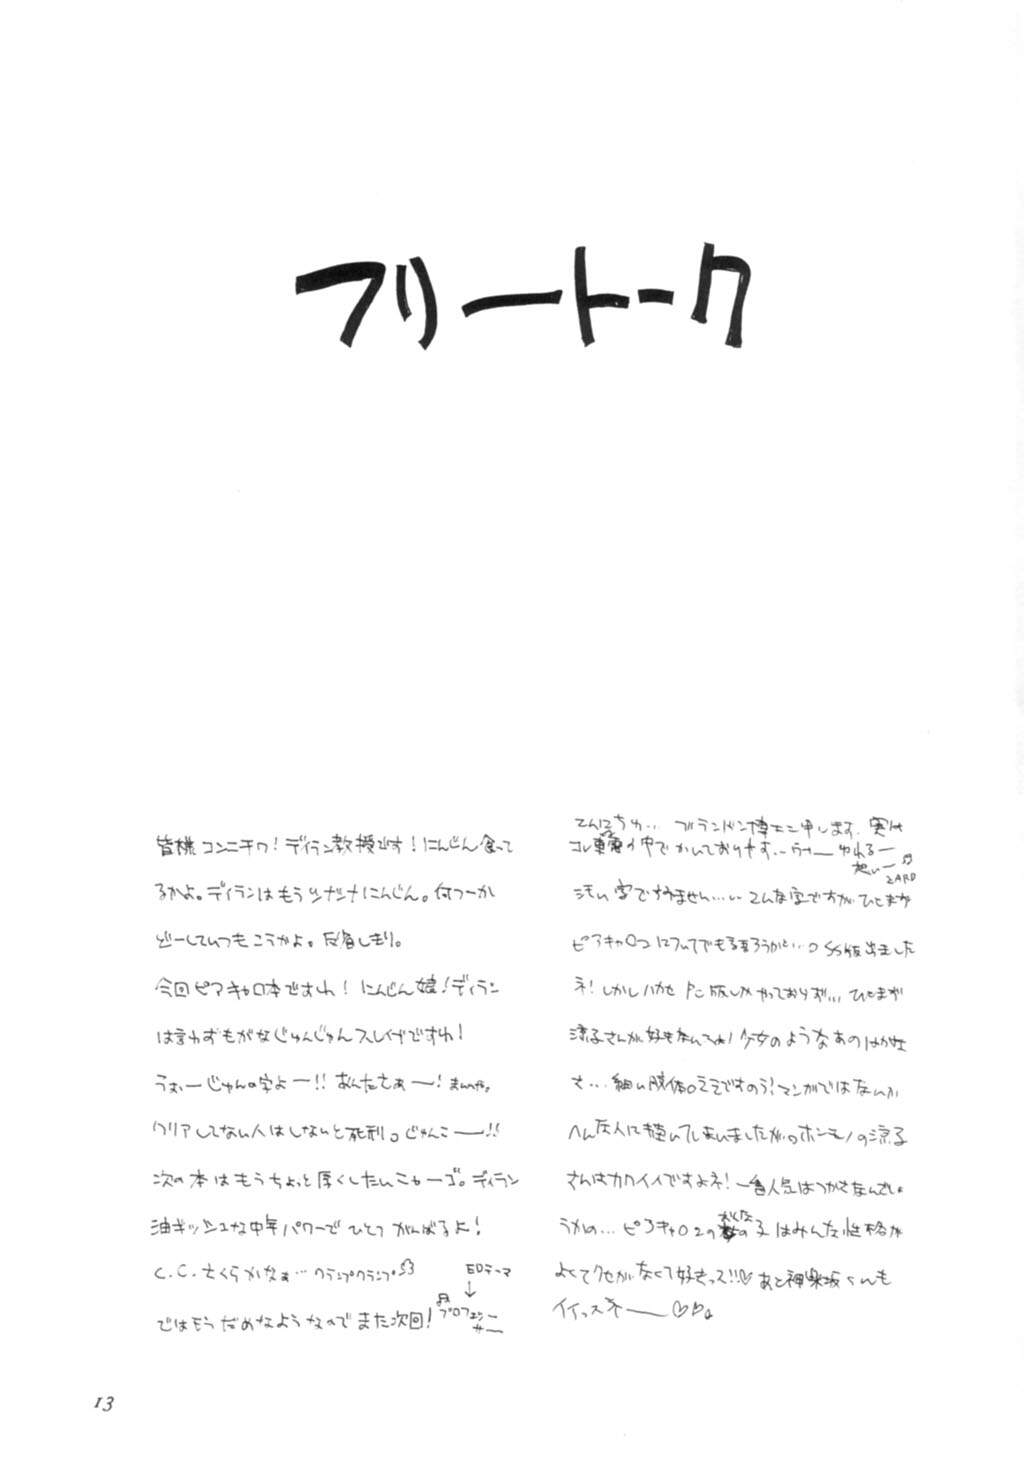 フリートーク
皆様コンニチワ！ディラン教授です！にんじん食って
るかよ。ディランはもう にんじん。何つーか
どーしていつもこうかよ。反省しまり。
今回ピアキャロ本ですわ！にんじん娘！ディラン
は言わずもがなじゅんじゅんスレイブですわ！
うぉーじゅんの字よー!!あんたさぁー！まんべや。
クリアしてない人はしないと死刑。じゅんこー!!
次の本はもうちょっと厚くしたいニャーゴ。ディラン
油ギッシュな中年パワーでひとつがんばるよ！
C.C.さくらかなぁ…クランプクランプ
ではもうだめなようなのでまた次回！
EDテーマ
↓
♫プロフェッサー
こんにちわ… ブランドン博士と申します。実は
コレ車の中でかいております…うーゆれるー
想いー♫
ZARD
汚い字ですみません…こんな字ですが、ひとまず
ピアキャロ2についてでも語ろうかと…。SS版出ました
ネ！しかしハカセ PC版しかやっておりず… ひとまず
涼子さんが好きなんでね！少女のようなあのはかな
さ…細い肢体。ええですのう！マンガではないか
へんな人に描いてしまいましたが。ホンモノの涼子
さんはカワイイですよネ！一番人気はつかさなんでしょ
うかの…ピアキャロ2の女の子はみんな性格が
よくてクセがなくて好きっス!!♡あと神楽坂くんも
イイっスネー♡♡。
13